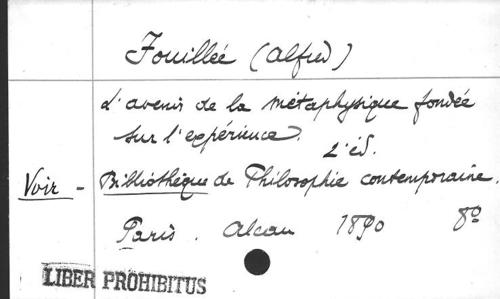 Fouillée (Alfred)
L'avenir de la métaphysique fondée
sur l'expérience.
2e éd.
Voir - Bibliothèque de Philosophie contemporaine.
Paris. Alcan 1890 8º
LIBER PROHIBITUS